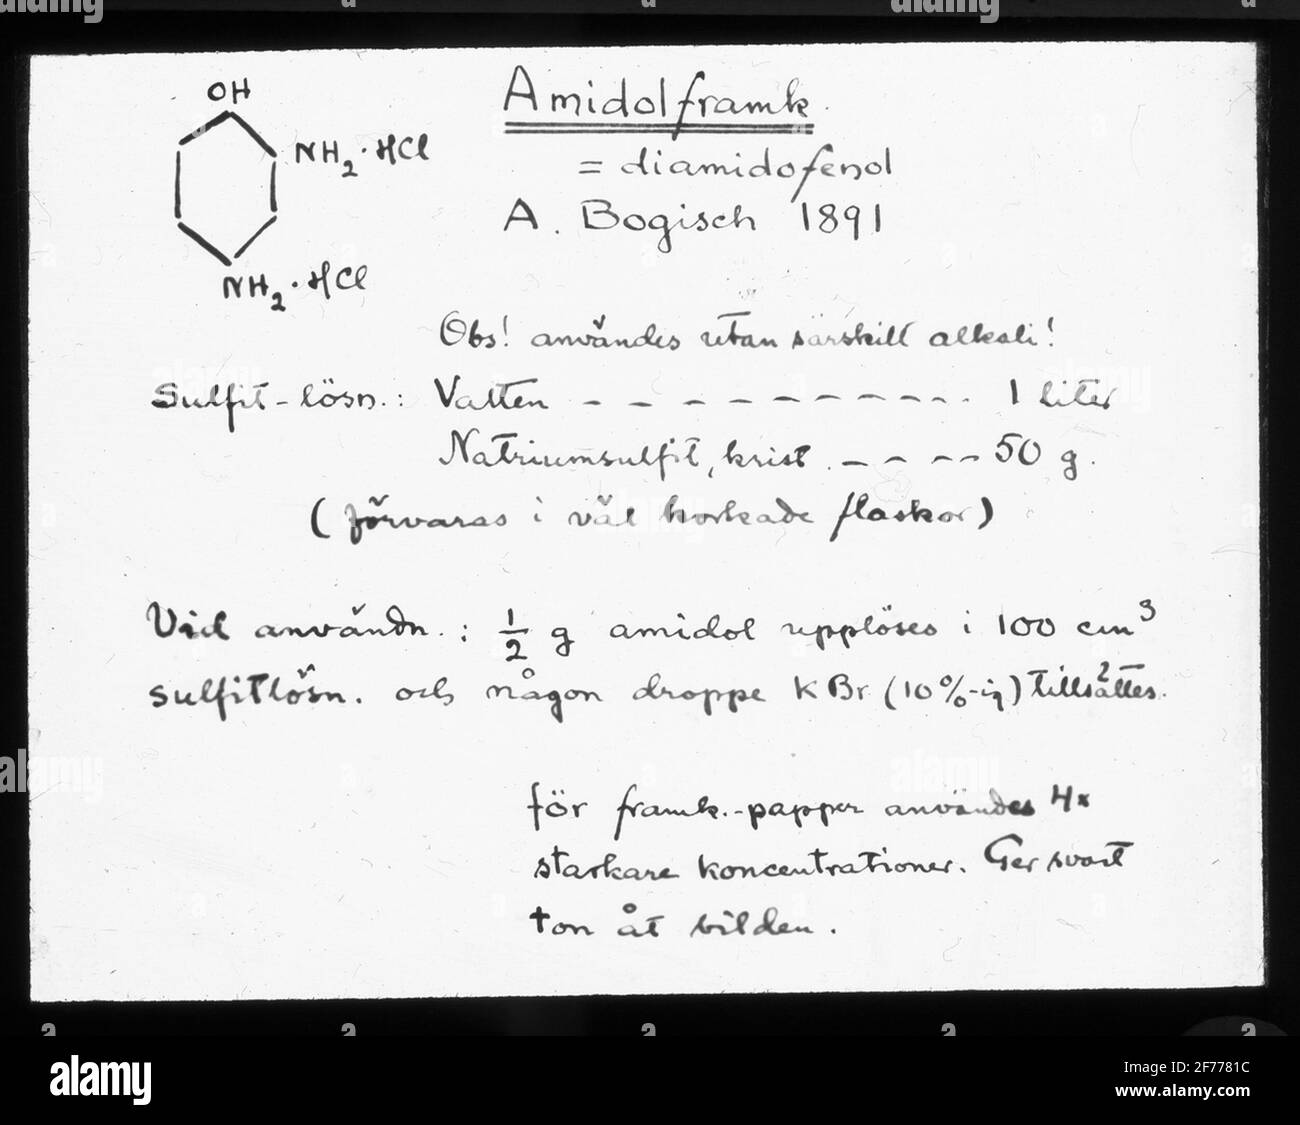 OH
NH2·HCl
NH2·HCl
Amidolframk.
= diamidofenol
A. Bogisch 1891
Obs! användes utan särskilt alkali!
Sulfit-lösn.: Vatten - - - - - - - - - - 1 liter
Natriumsulfit, krist. - - - - 50 g.
(förvaras i väl korkade flaskor)
Vid användn.: 1/2 g amidol upplöses i 100 cm³
sulfitlösn. och någon droppe KBr (10%-ig) tillsättes.
för framk.-papper användes 4x
starkare koncentrationer. Ger svart
ton åt bilden.
alamy
Image ID: 2F7781C
www.alamy.com